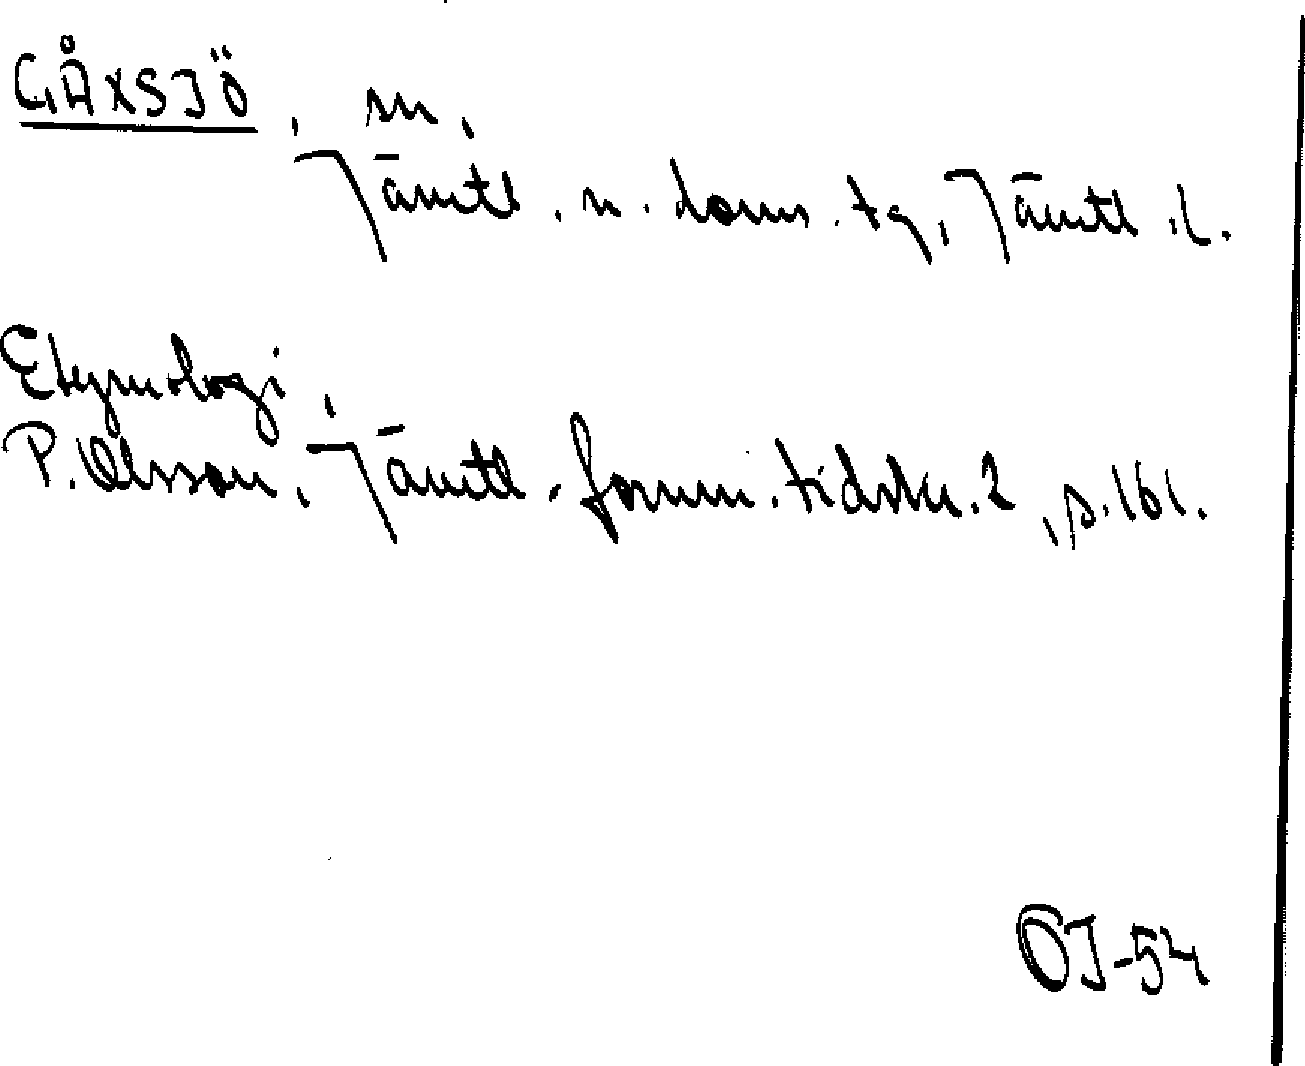 GÅXSJÖ, sn,
Jämtl. n. doms. tg, Jämtl. l.
Etymologi,
P. Olsson, Jämtl. fornm. tidskr. 2, s. 161.
ÖJ-54